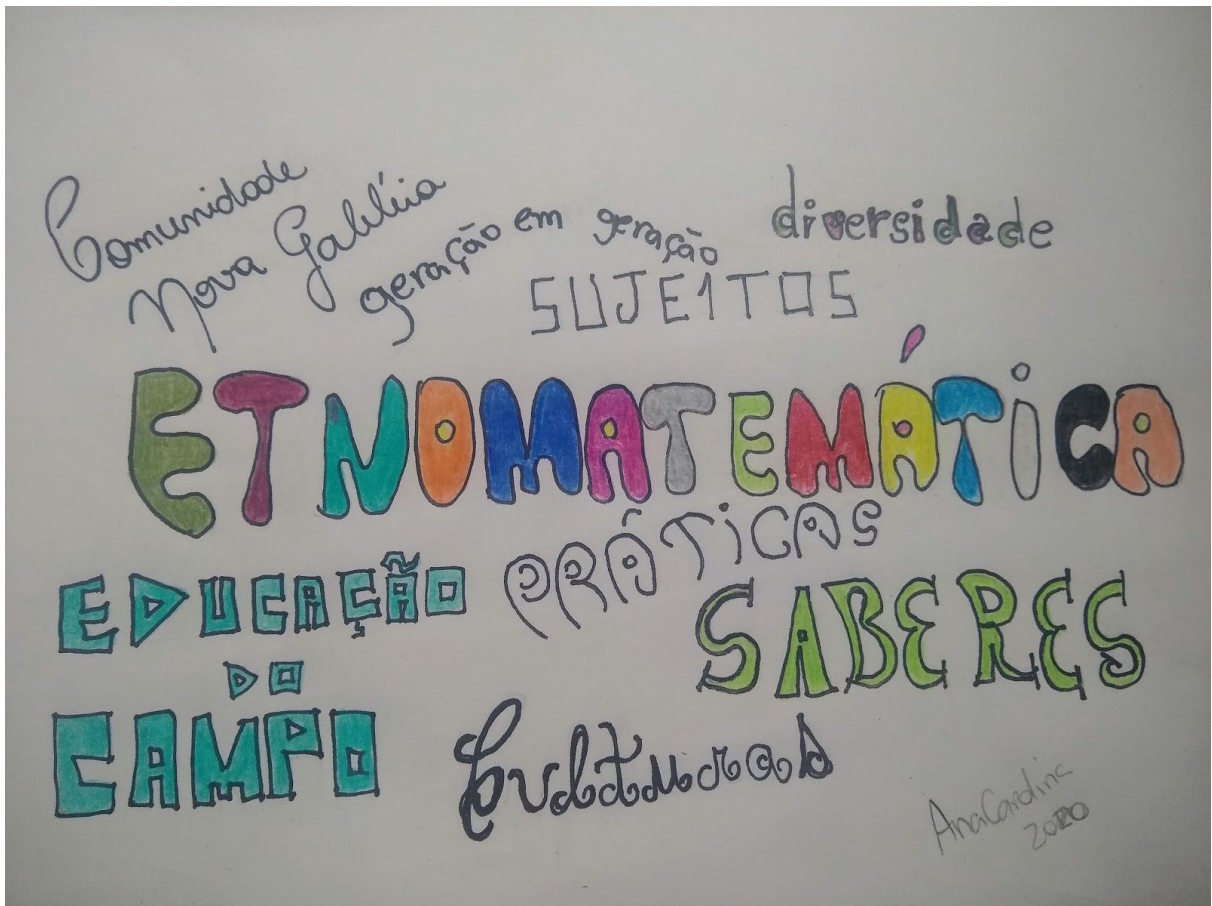 Comunidade
Nova Galiléia
geração em geração
diversidade
SUJEITOS
ETNOMATEMÁTICA
EDUCAÇÃO
DO
CAMPO
PRÁTICAS
SABERES
Culturas
Ana Carolina
2020